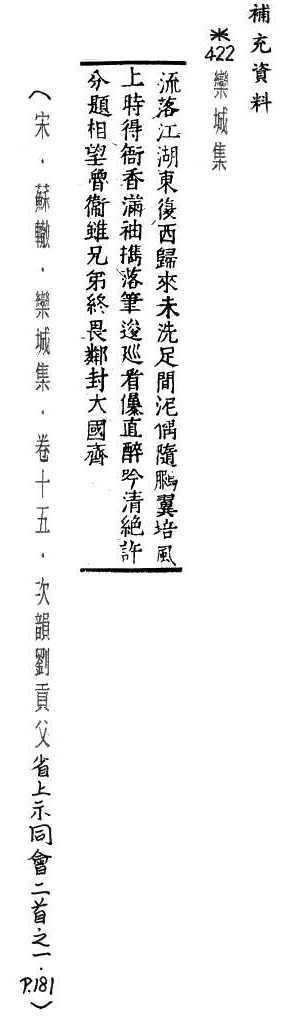 補充資料
*422 欒城集
流落江湖東復西歸來未洗足間泥偶隨鵬翼培風
上時得衙香滿袖攜落筆逡巡看儤直醉吟清絕許
分題相望魯衞雖兄弟終畏鄰封大國齊
(宋·蘇轍·欒城集·卷十五·次韻劉貢父省上示同會二首之一·P.181)